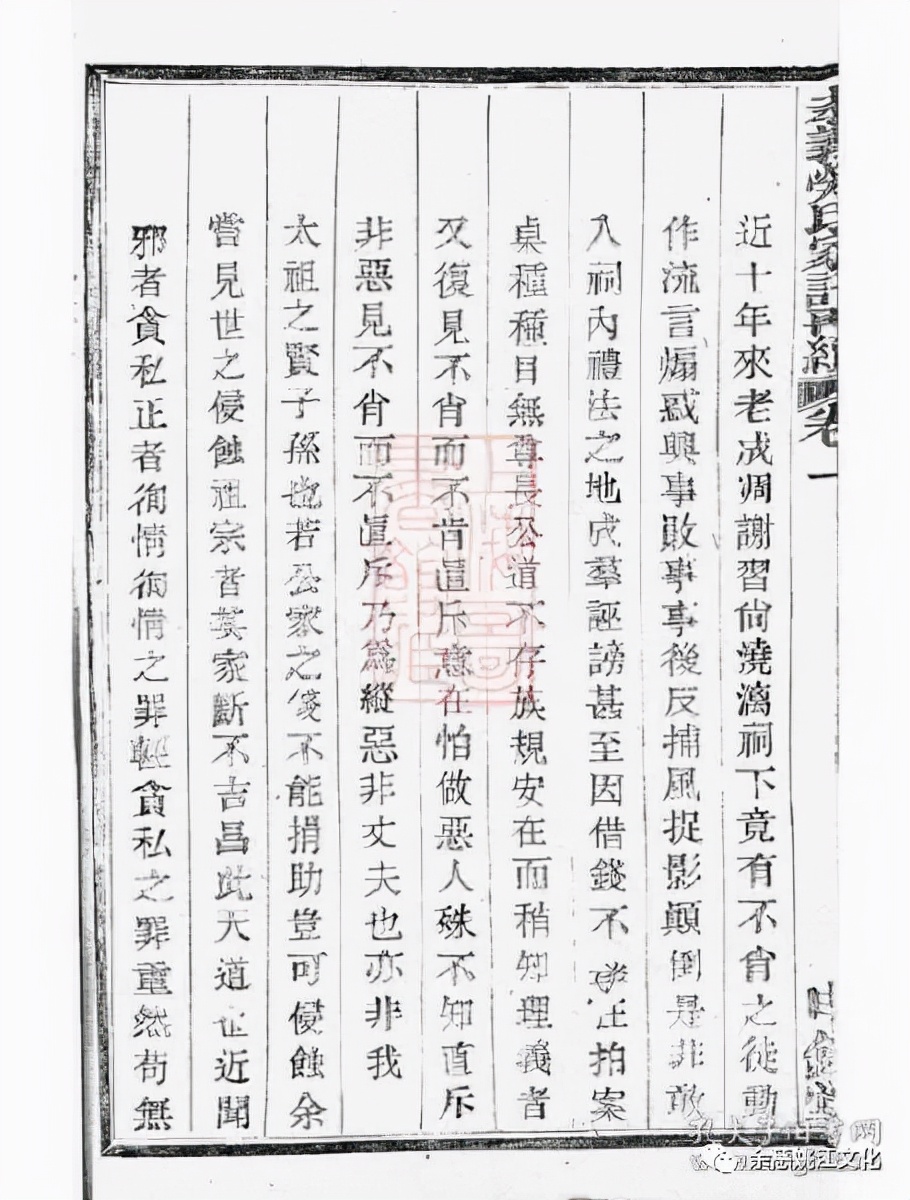 近十年來老成凋謝習尙澆漓祠下竟有不肖之徒動
作流言煽惑興事敗事事後反捕風捉影顚倒是非敢
入祠內禮法之地成羣誣謗甚至因借錢不 拍案
桌種種目無尊長公道不存族規安在而稍知理義者
又復見不肖而不肯直斥意在怕做惡人殊不知直斥
非惡見不肖而不直斥乃爲縱惡非丈夫也亦非我
太祖之賢子孫也若公家之 不能捐助豈可侵蝕余
嘗見世之侵蝕祖宗者其家斷不吉昌此天道也近聞
邪者貪私正者徇情徇情之罪輕貪私之罪重然苟無
氏家 卷一